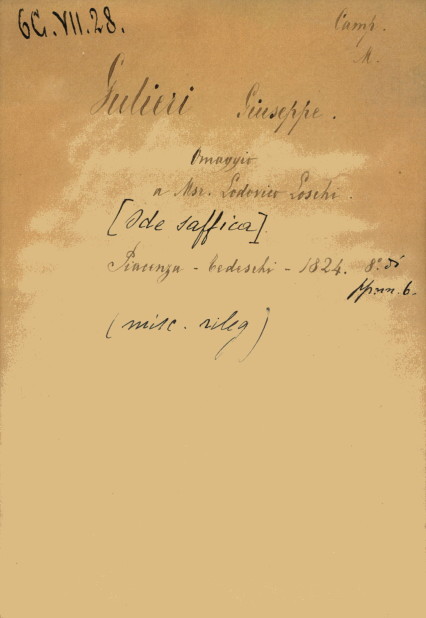 6G.VII.28.
Camp.
M.
Gulieri Giuseppe.
Omaggio
a Msr. Lodovico Loschi.
[Ode saffica]
Piacenza - Tedeschi - 1824. 8.° di
pp.nn. 6.
(misc. rileg)